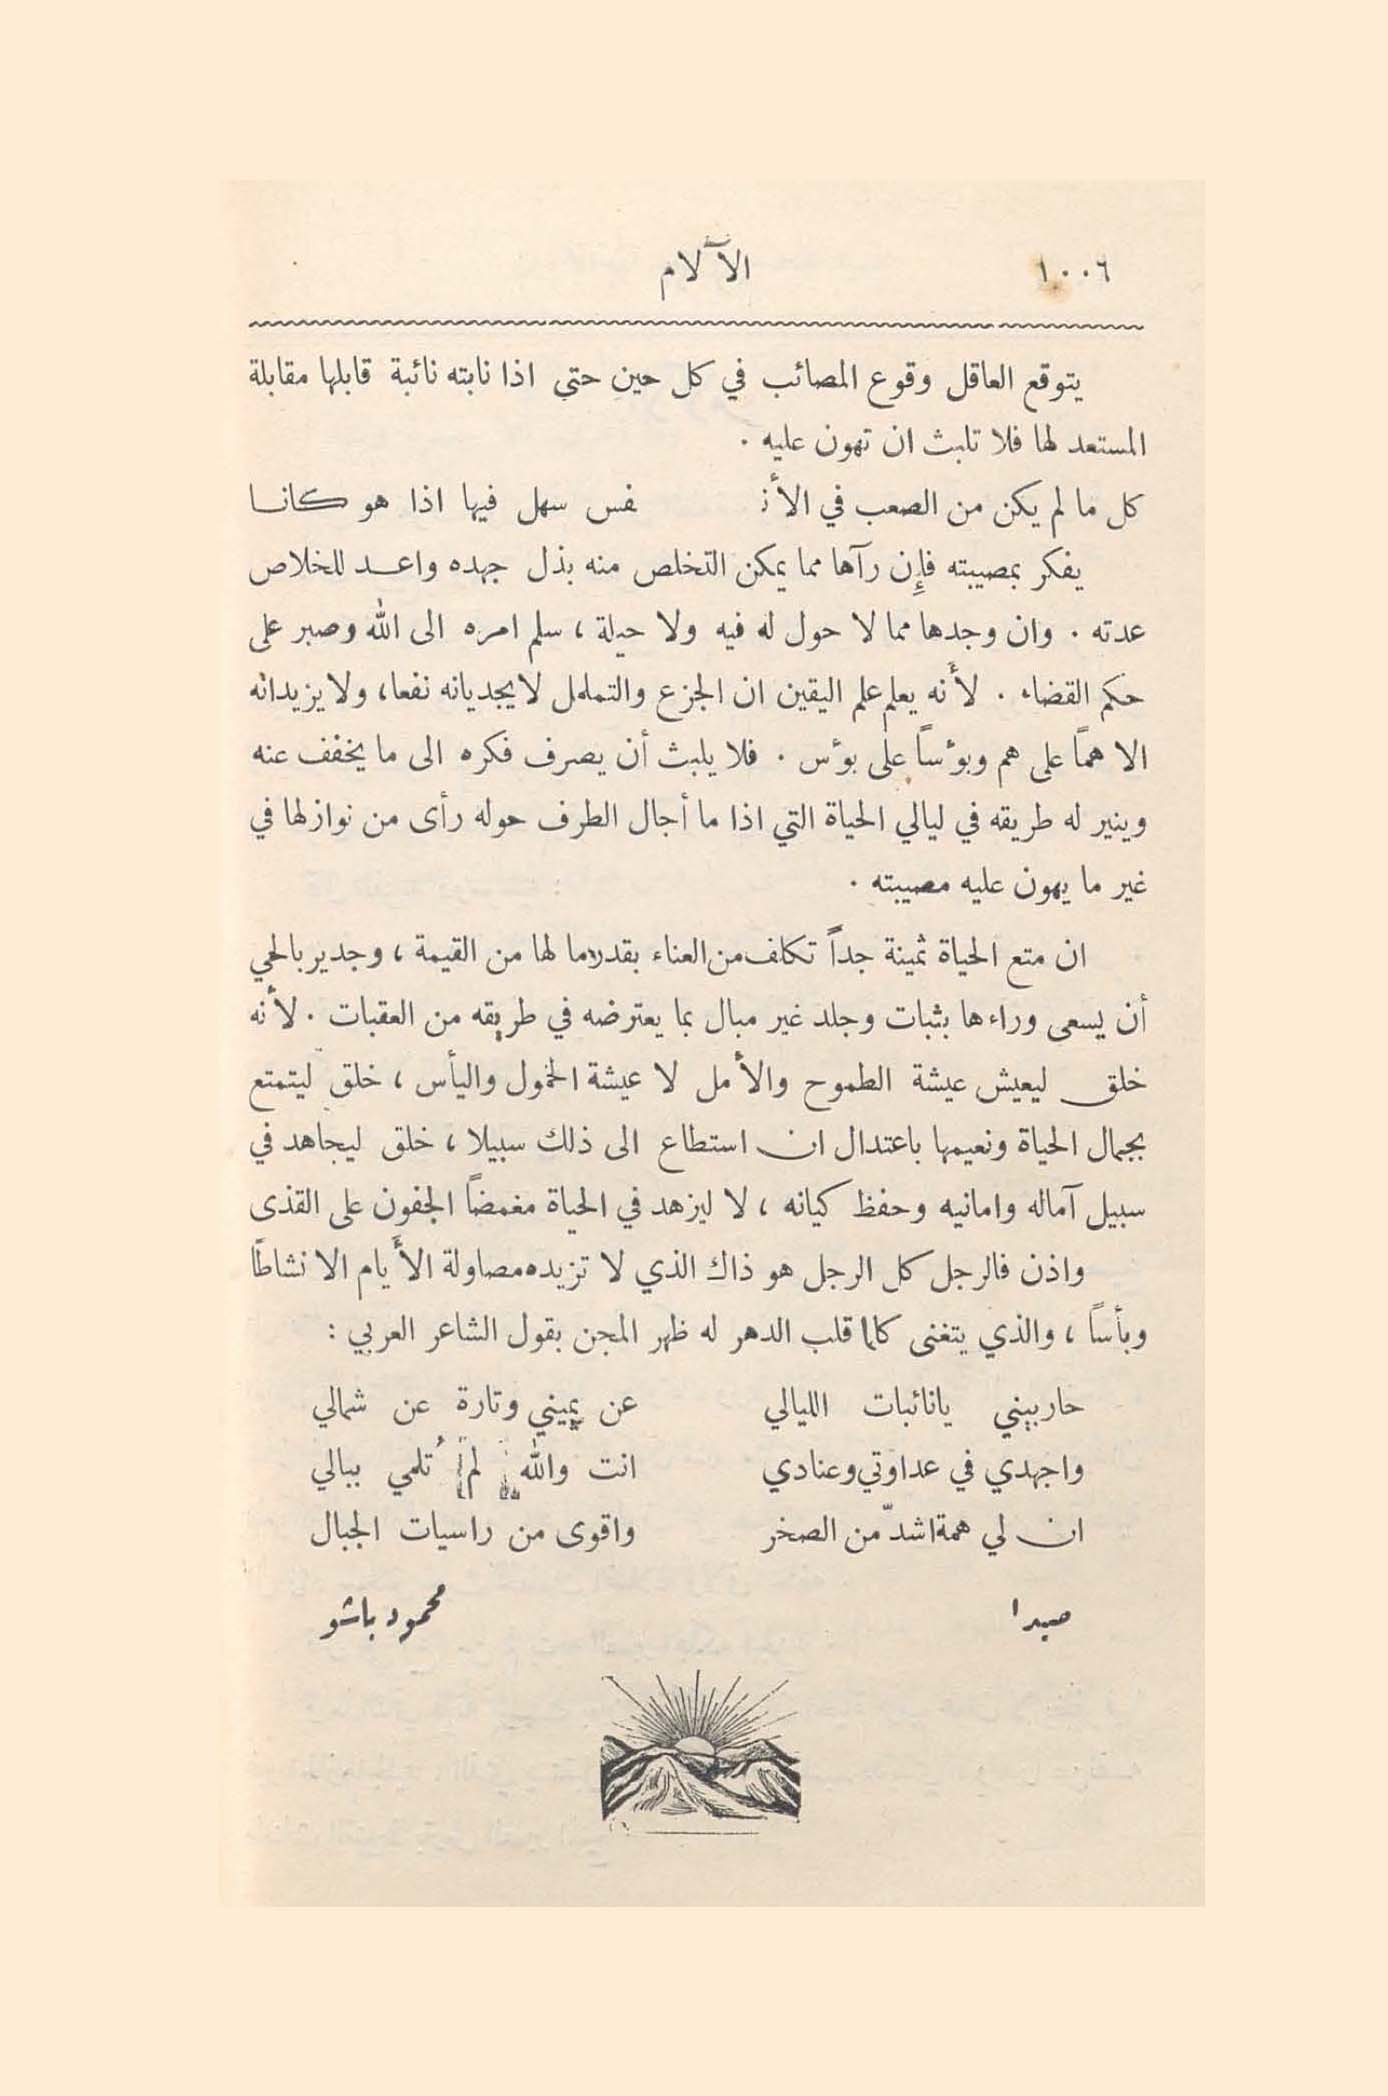 ١٠٠٦ الآلام
يتوقع العاقل وقوع المصائب في كل حين حتى اذا نابته نائبة قابلها مقابلة
المستعد لها فلا تلبث ان تهون عليه .
كل ما لم يكن من الصعب في الأنـ ـفس سهل فيها اذا هو كانا
يفكر بمصيبته فإن رآها مما يمكن التخلص منه بذل جهده واعد للخلاص
عدته . وان وجدها مما لا حول له فيه ولا حيلة ، سلم امره الى الله وصبر على
حكم القضاء . لأنه يعلم علم اليقين ان الجزع والتململ لا يجديانه نفعا، ولا يزيدانه
الا هماً على هم وبؤساً على بؤس . فلا يلبث أن يصرف فكره الى ما يخفف عنه
وينير له طريقه في ليالي الحياة التي اذا ما أجال الطرف حوله رأى من نوازلها في
غير ما يهون عليه مصيبته .
ان متع الحياة ثمينة جداً تكلف من العناء بقدر ما لها من القيمة ، وجدير بالحي
أن يسعى وراءها بثبات وجلد غير مبال بما يعترضه في طريقه من العقبات . لأنه
خلق ليعيش عيشة الطموح والأمل لا عيشة الخمول واليأس ، خلق ليتمتع
بجمال الحياة ونعيمها باعتدال ان استطاع الى ذلك سبيلا ، خلق ليجاهد في
سبيل آماله وامانيه وحفظ كيانه ، لا ليزهد في الحياة مغمضاً الجفون على القذى
واذن فالرجل كل الرجل هو ذاك الذي لا تزيده مصاولة الأيام الا نشاطاً
وبأساً ، والذي يتغنى كلما قلب الدهر له ظهر المجن بقول الشاعر العربي :
حاربيني يانائبات الليالي عن يميني وتارة عن شمالي
واجهدي في عداوتي وعنادي انت والله لم تُلمي ببالي
ان لي همة اشدّ من الصخر واقوى من راسيات الجبال
صيدا محمود باشو